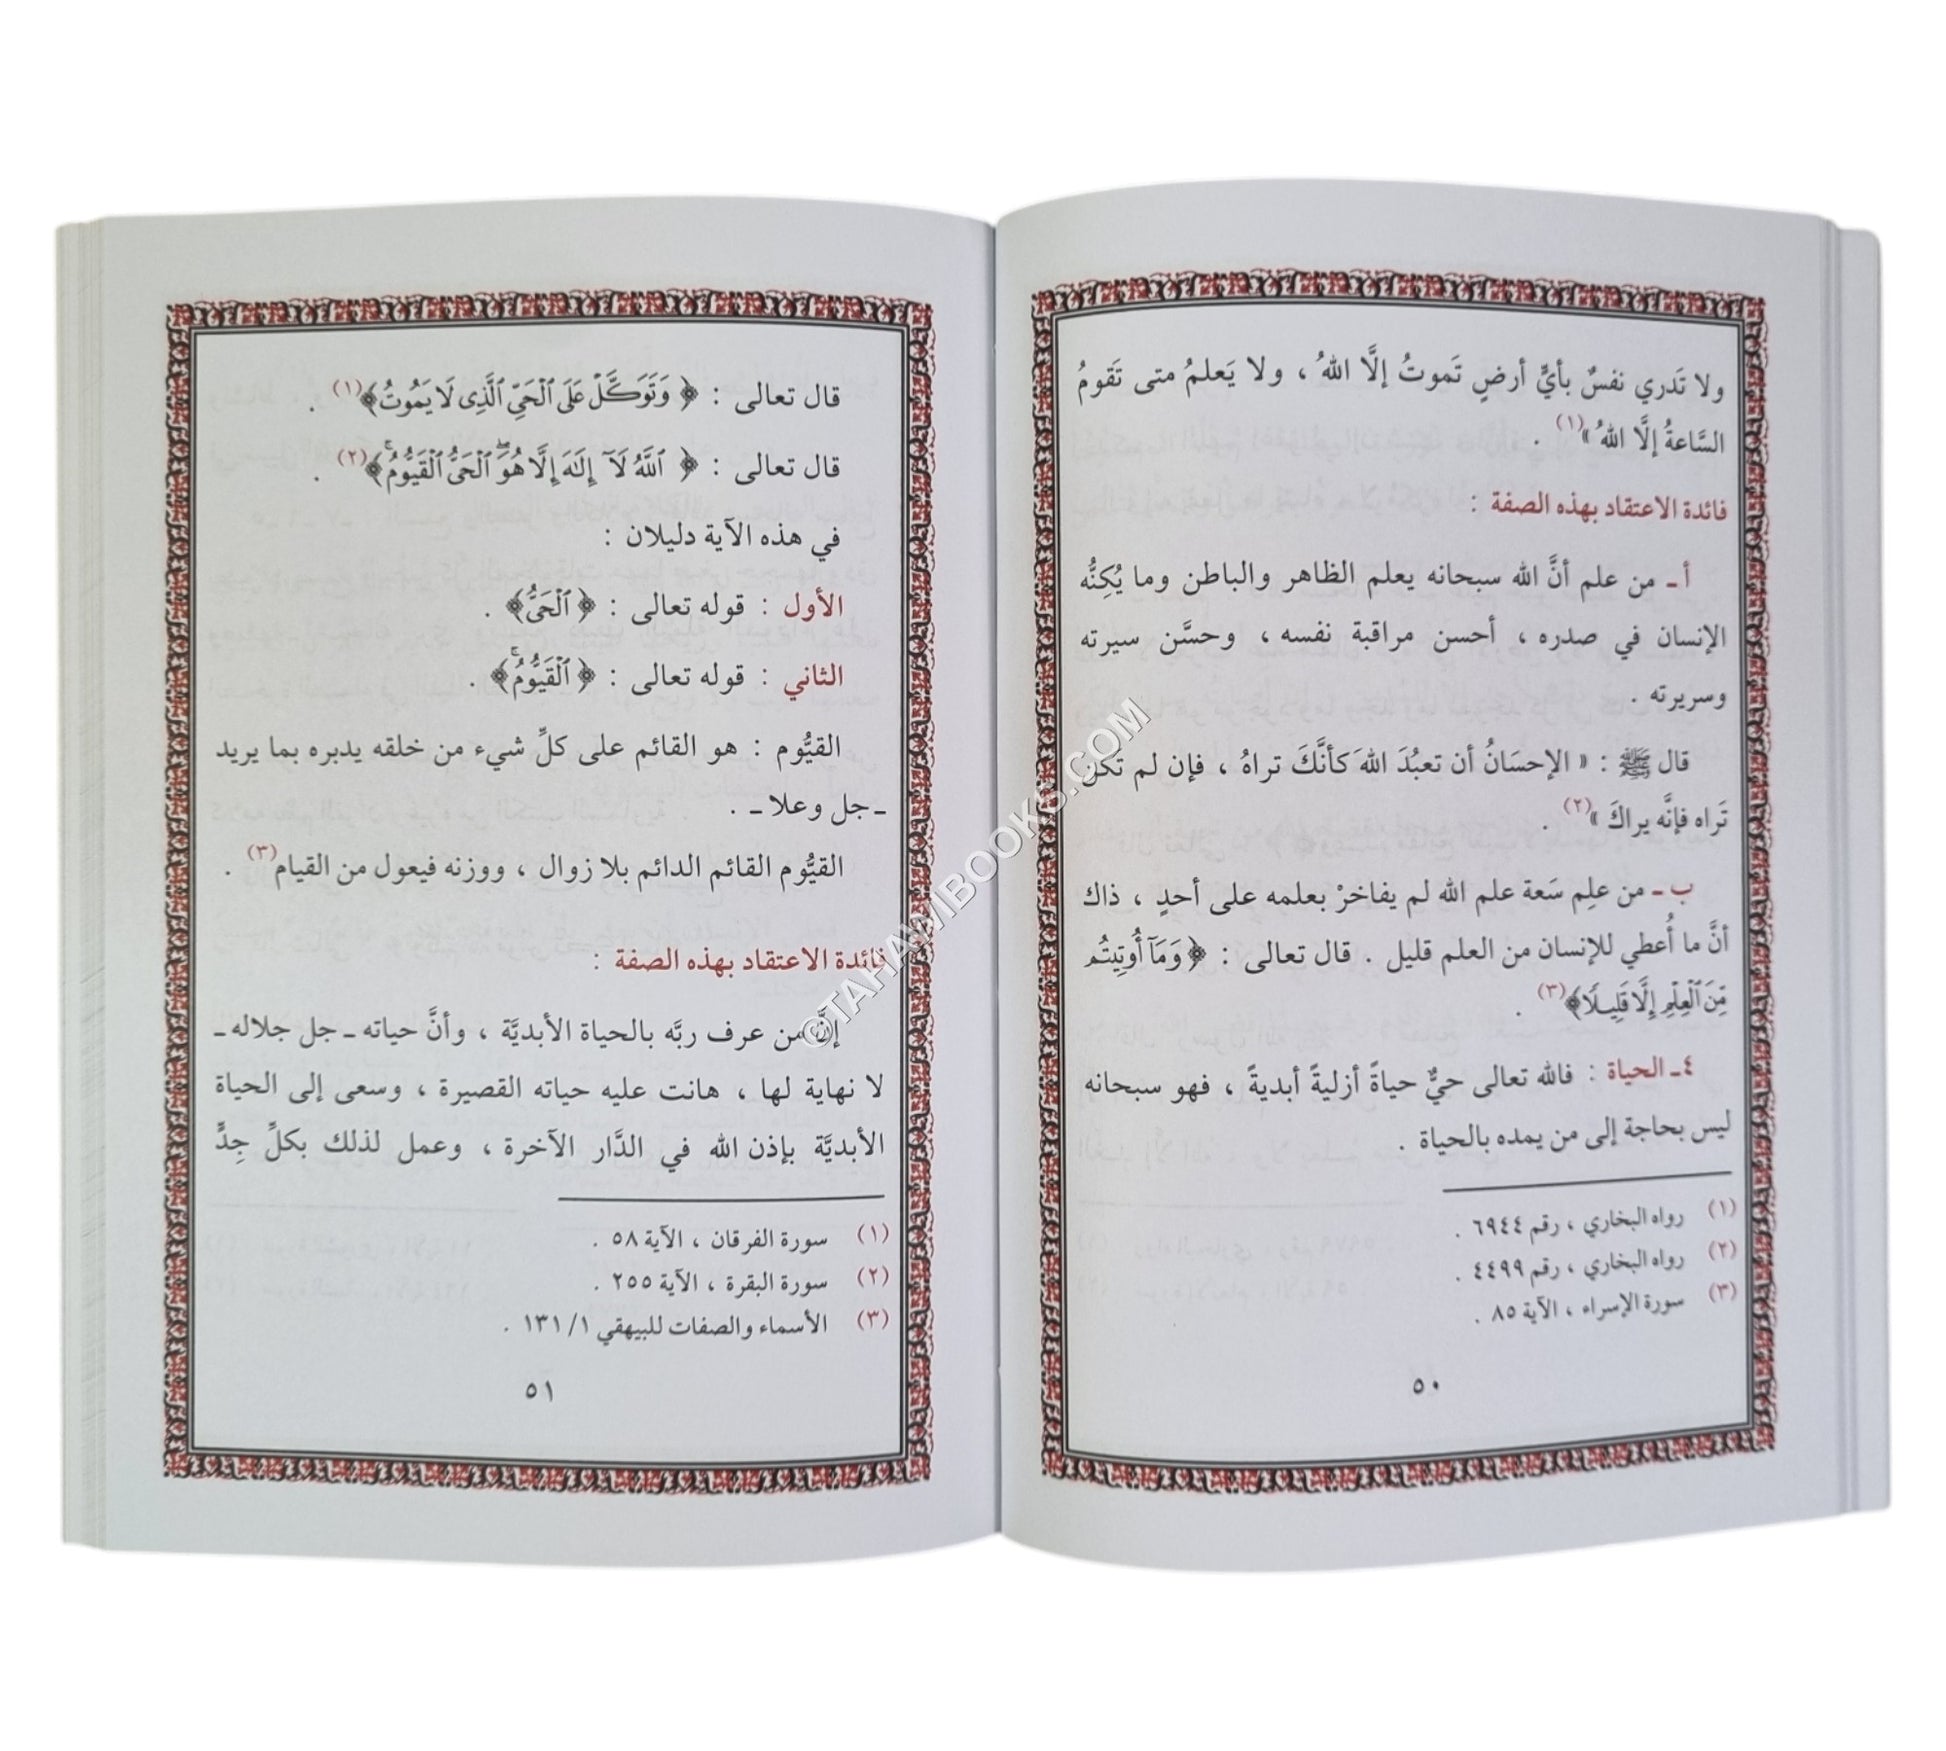 ولا تَدري نفسٌ بأيِّ أرضٍ تَموتُ إلَّا اللهُ ، ولا يَعلمُ متى تَقومُ
السَّاعةُ إلَّا اللهُ »(١) .
فائدة الاعتقاد بهذه الصفة :
أ ـ من علم أنَّ الله سبحانه يعلم الظاهر والباطن وما يُكِنُّه
الإنسان في صدره ، أحسن مراقبة نفسه ، وحسَّن سيرته
وسريرته .
قال ﷺ : « الإحسَانُ أن تعبُدَ اللهَ كَأنَّكَ تراهُ ، فإن لم تكن
تَراه فإنَّه يراكَ »(٢) .
ب ـ من علِم سَعة علم الله لم يفاخرْ بعلمه على أحدٍ ، ذاك
أنَّ ما أُعطي للإنسان من العلم قليل . قال تعالى : ﴿ وَمَآ أُوتِيتُم
مِّنَ ٱلْعِلْمِ إِلَّا قَلِيلًا﴾(٣) .
٤ ـ الحياة : فالله تعالى حيٌّ حياةً أزليةً أبديةً ، فهو سبحانه
ليس بحاجة إلى من يمده بالحياة .
(١) رواه البخاري ، رقم ٦٩٤٤ .
(٢) رواه البخاري ، رقم ٤٤٩٩ .
(٣) سورة الإسراء ، الآية ٨٥ .
٥٠
قال تعالى : ﴿ وَتَوَكَّلْ عَلَى ٱلْحَىِّ ٱلَّذِى لَا يَمُوتُ﴾(١) .
قال تعالى : ﴿ ٱللَّهُ لَآ إِلَٰهَ إِلَّا هُوَ ٱلْحَىُّ ٱلْقَيُّومُ ۚ﴾(٢) .
في هذه الآية دليلان :
الأول : قوله تعالى : ﴿ ٱلْحَىُّ﴾ .
الثاني : قوله تعالى : ﴿ ٱلْقَيُّومُ ۚ﴾ .
القيُّوم : هو القائم على كلِّ شيء من خلقه يدبره بما يريد
ـ جل وعلا ـ .
القيُّوم القائم الدائم بلا زوال ، ووزنه فيعول من القيام(٣) .
فائدة الاعتقاد بهذه الصفة :
إنَّ من عرف ربَّه بالحياة الأبديَّة ، وأنَّ حياته ـ جل جلاله ـ
لا نهاية لها ، هانت عليه حياته القصيرة ، وسعى إلى الحياة
الأبديَّة بإذن الله في الدَّار الآخرة ، وعمل لذلك بكلِّ جِدٍّ
(١) سورة الفرقان ، الآية ٥٨ .
(٢) سورة البقرة ، الآية ٢٥٥ .
(٣) الأسماء والصفات للبيهقي ١/ ١٣١ .
٥١
©TAHAWIBOOKS.COM